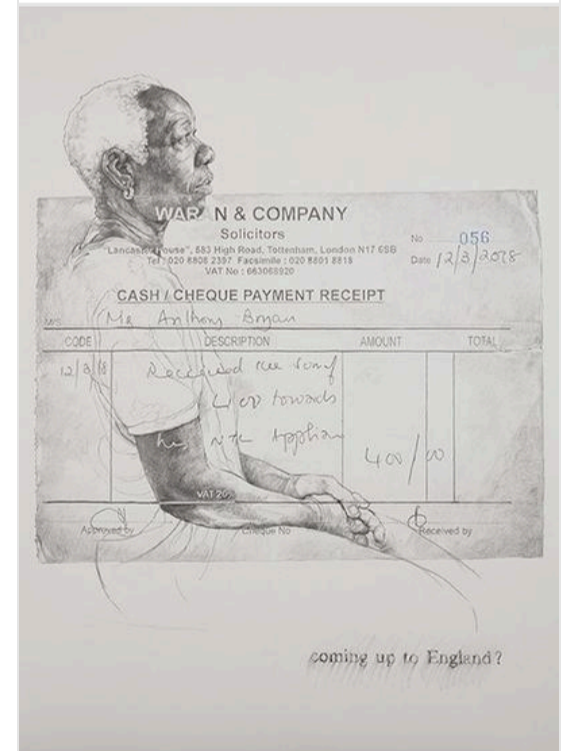 WAR N & COMPANY
Solicitors
"Lancaster House", 583 High Road, Tottenham, London N17 6SB
Tel : 020 8808 2397 Facsimile : 020 8801 8818
VAT No : 663068920
No 056
Date 12/3/2018
CASH / CHEQUE PAYMENT RECEIPT
M/S Mr Anthony Bryan
CODE DESCRIPTION AMOUNT TOTAL
12/3/18 Received the sum of
400 towards
his NTL Application
400/00
VAT 20
Approved by Cheque No Received by
coming up to England?